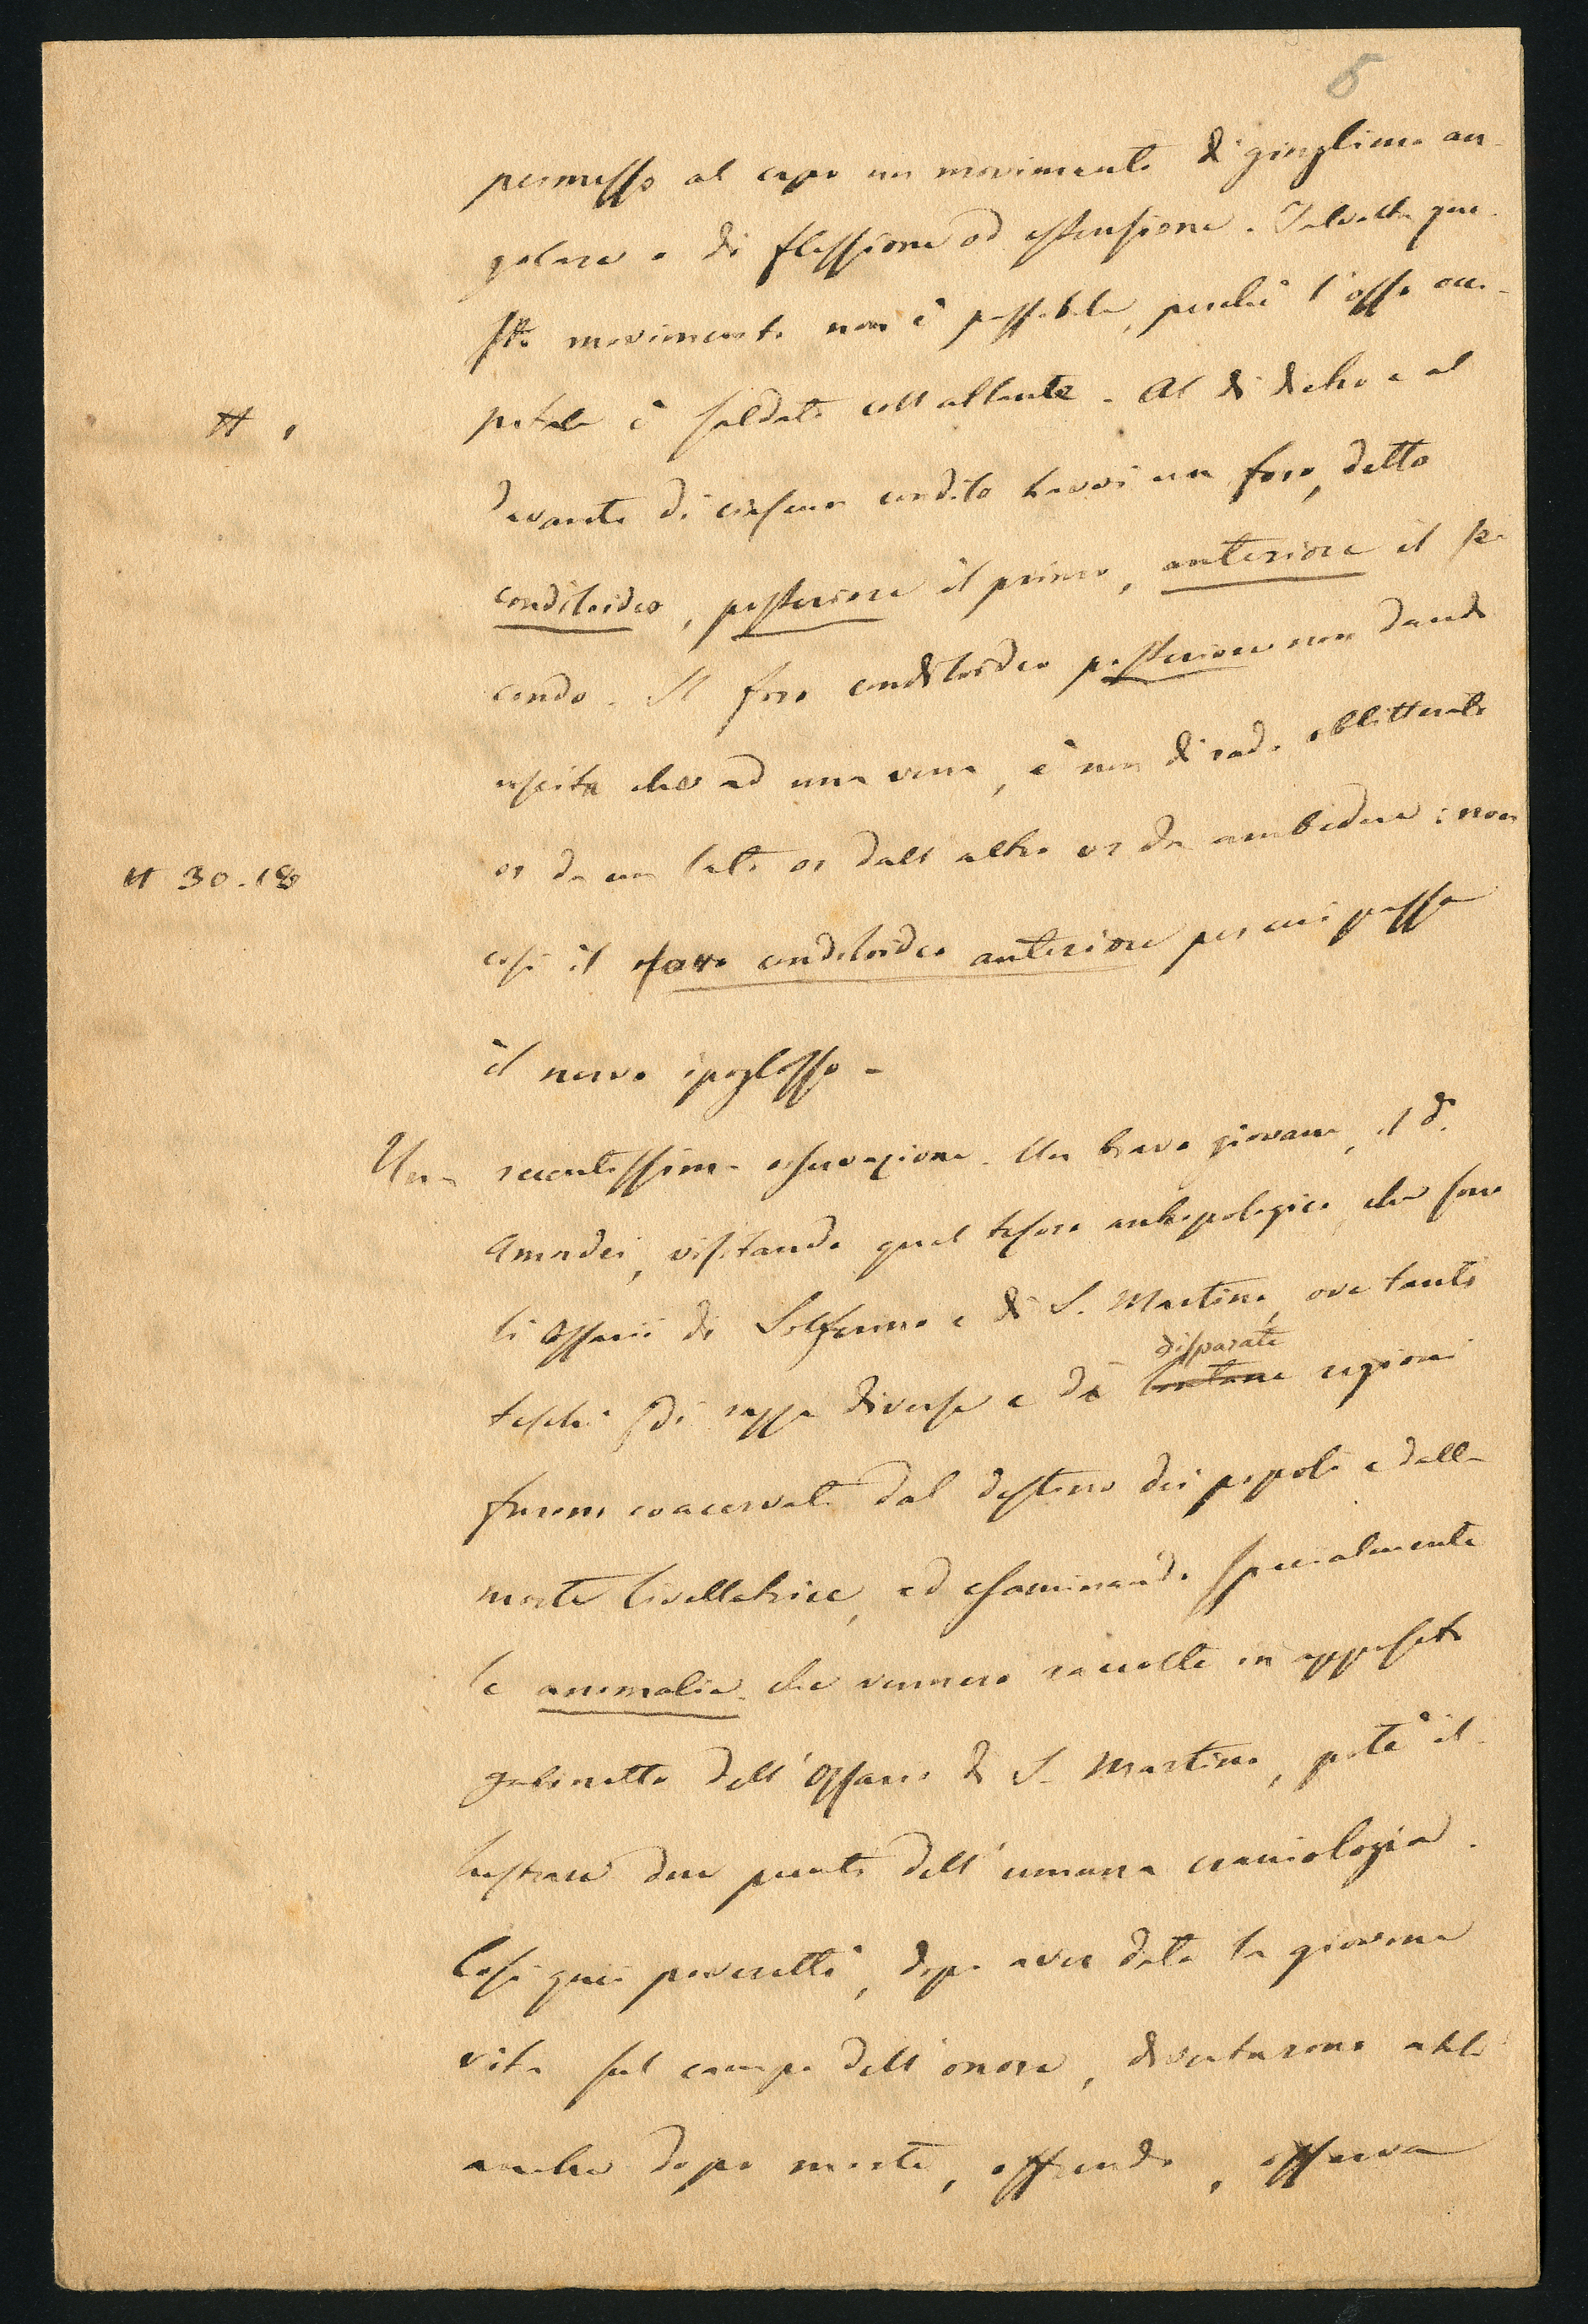 5
permesso al capo un movimento di ginglimo an-
golare o di flessione od estensione. Talvolta que-
sto movimento non è possibile, perchè l'osso occi-
pitale è saldato coll'atlante. Al di dietro e al
davanti di ciascun condilo havvi un foro, detto
condiloideo, posteriore il primo, anteriore il se-
condo. Il foro condiloideo posteriore non dando
uscita che ad una vena, è non di rado oblitterato
or da un lato or dall'altro or da ambedue; non
# 30.18
così il foro condiloideo anteriore per cui passa
il nervo ipoglosso.
Una recentissima osservazione. Un bravo giovane, il d.r
Amadei, visitando quel tesoro antropologico che sono
li Ossarii di Solferino e di S. Martino, ove tanti
disparate
teschi di razza diversa e di lontane regioni
furono coacervati dal destino dei popoli e dalla
morte livellatrice, ed esaminando specialmente
le anomalie che vennero raccolte in apposito
gabinetto dell'Ossario di S. Martino, potè il-
lustrare due punti dell'umana craniologia.
Così quei poveretti, dopo aver data la giovane
vita sul campo dell'onore, diventarono utili
anche dopo morte, offrendo, osserva